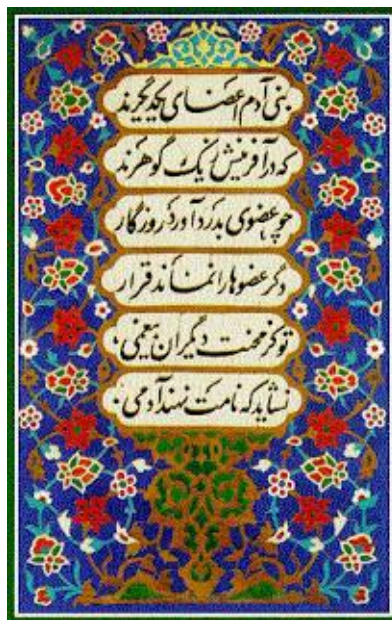 بنی آدم اعضای یکدیگرند
که در آفرینش ز یک گوهرند
چو عضوی بدرد آورد روزگار
دگر عضوها را نماند قرار
تو کز محنت دیگران بیغمی،
نشاید که نامت نهند آدمی.